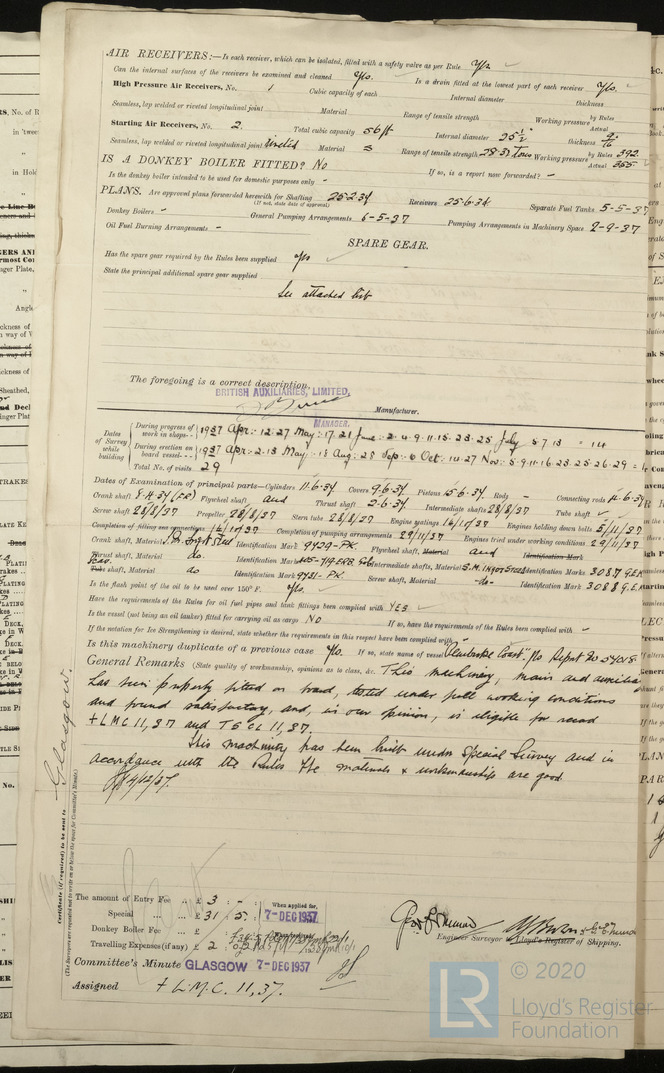 AIR RECEIVERS:—Is each receiver, which can be isolated, fitted with a safety valve as per Rule Yes
Can the internal surfaces of the receivers be examined and cleaned Yes. Is a drain fitted at the lowest part of each receiver Yes.
High Pressure Air Receivers, No. 1 Cubic capacity of each Internal diameter thickness
Seamless, lap welded or riveted longitudinal joint Material Range of tensile strength Working pressure by Rules Actual
Starting Air Receivers, No. 2. Total cubic capacity 56 ft Internal diameter 25 1/2" thickness 9/16
Seamless, lap welded or riveted longitudinal joint riveted Material S Range of tensile strength 28-31 tons Working pressure by Rules 392 Actual 355
IS A DONKEY BOILER FITTED? No If so, is a report now forwarded? -
Is the donkey boiler intended to be used for domestic purposes only -
PLANS. Are approved plans forwarded herewith for Shafting 25-2-37 Receivers 25-6-34 Separate Fuel Tanks 5-5-37
(If not, state date of approval)
Donkey Boilers - General Pumping Arrangements 6-5-37 Pumping Arrangements in Machinery Space 2-9-37
Oil Fuel Burning Arrangements -
SPARE GEAR.
Has the spare gear required by the Rules been supplied Yes
State the principal additional spare gear supplied
See attached list
The foregoing is a correct description,
BRITISH AUXILIARIES, LIMITED.
MANAGER.
Manufacturer.
Dates of Survey while building
During progress of work in shops-- 1937 Apr: 12-27 May: 17-21 June: 2-4-9-11-15-23-25 July 5-7-13 = 14
During erection on board vessel-- 1937 Apr: 2-13 May: 18 Aug: 28 Sep: 6 Oct: 14-27 Nov: 5-9-11-16-23-25-26-29
Total No. of visits 29
Dates of Examination of principal parts—Cylinders 11-6-37 Covers 9-6-37 Pistons 15-6-37 Rods - Connecting rods
Crank shaft Flywheel shaft and Thrust shaft 2-6-37 Intermediate shafts 28/8/37 Tube shaft
Screw shaft 28/8/37 Propeller 28/8/37 Stern tube 28/8/37 Engine seatings 14/10/37 Engines holding down bolts 5/11/37
Completion of fitting sea connections 14/10/37 Completion of pumping arrangements 29/11/37 Engines tried under working conditions 29/11/37
Crank shaft, Material S.M. Ingot Steel Identification Mark 9729-PK. Flywheel shaft, Material and Identification Mark
Thrust shaft, Material do. Identification Mark Intermediate shafts, Material S.M. INGOT STEEL Identification Marks 3087 G.E.M
Tube shaft, Material do Identification Mark 9731-PK. Screw shaft, Material -do- Identification Mark 3088 G.E.M
Is the flash point of the oil to be used over 150° F. Yes.
Have the requirements of the Rules for oil fuel pipes and tank fittings been complied with YES
Is the vessel (not being an oil tanker) fitted for carrying oil as cargo NO If so, have the requirements of the Rules been complied with -
If the notation for Ice Strengthening is desired, state whether the requirements in this respect have been complied with -
Is this machinery duplicate of a previous case Yes. If so, state name of vessel "Pembroke Coast". Report No 57018
General Remarks (State quality of workmanship, opinions as to class, &c. This machinery, main and auxiliary
has been properly fitted on board, tested under full working conditions
and found satisfactory, and, in our opinion, is eligible for record
+LMC 11,37 and TSCL 11,37.
This machinery has been built under Special Survey and in
accordance with the Rules the materials & workmanship are good.
4/12/37.
Certificate (if required) to be sent to Glasgow.
(The Surveyors are requested not to write on or below the space for Committee's Minute.)
The amount of Entry Fee .. £ 3 : - :
Special ... ... £ 31 : 5 :
When applied for,
7-DEC 1937
Donkey Boiler Fee ... £
Travelling Expenses (if any) £ 2
Engineer Surveyor to Lloyd's Register of Shipping.
Committee's Minute GLASGOW 7-DEC 1937
Assigned + L.M.C. 11,37.
LR
© 2020
Lloyd's Register
Foundation